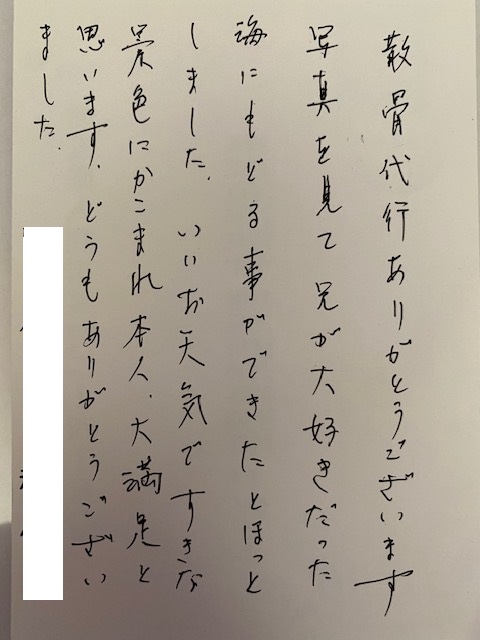 散骨代行ありがとうございます
写真を見て兄が大好きだった
海にもどる事ができたとほっと
しました。いいお天気ですきな
景色にかこまれ本人、大満足と
思います。どうもありがとうござい
ました。